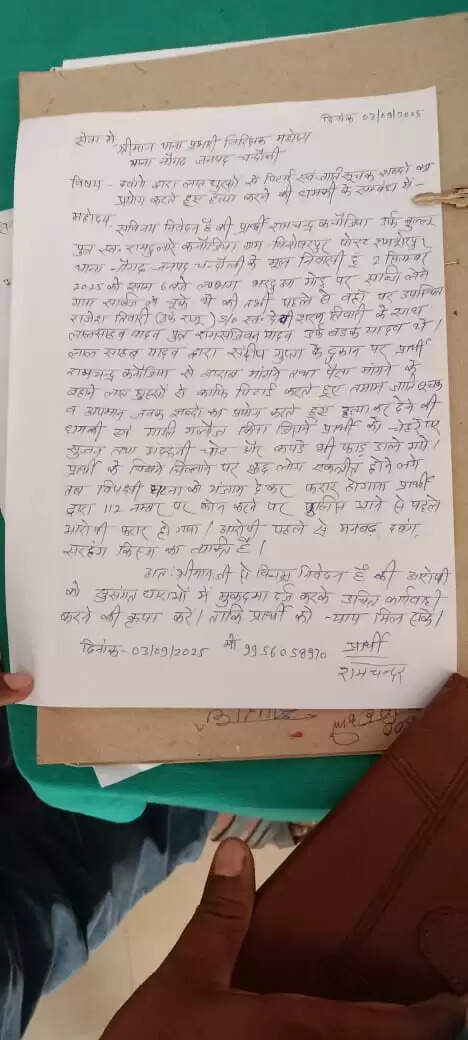 दिनांक 03/09/2025
सेवा मे
श्रीमान थाना प्रभारी निरिक्षक महोदय
थाना नौगढ़ जनपद चन्दौली
विषय - दबंगो द्वारा लात घुस्सो से पिटाई एवं जाति सूचक शब्दो का
प्रयोग करते हुए हत्या करने की धमकी के सम्बन्ध में-
महोदय,
सविनय निवेदन है की प्रार्थी रामचन्द्र कनौजिया उर्फ
पुत्र स्व॰ रामदुलारे कनौजिया ग्राम पोस्ट
थाना - नौगढ़ जनपद चन्दौली के मूल निवासी हूँ 2 सितम्बर
2025 को शाम 6 बजे लगभग मोड़ पर सब्जी लेने
गया था की तभी पहले से वहाँ पर उपस्थित
राजेश तिवारी (उर्फ राजू) S/o स्व॰ देवी शरण तिवारी के साथ
लालसाहब यादव पुत्र रामसजिवन यादव उर्फ बड़क यादव थे।
लाल साहब यादव द्वारा संदीप गुप्ता के दुकान पर प्रार्थी
रामचन्द्र कनौजिया से शराब मांगने तथा पैसा मांगने के
बहाने लात घुस्सो से काफि पिटाई करते हुए तमाम जाति सूचक
व अपमान जनक शब्दो का प्रयोग करते हुए हत्या कर देने की
धमकी एवं गाली गलौज किया जिसमें प्रार्थी को चेहरे पर
सुजन तथा अंदरूनी चोट और कपड़े भी फाड़ डाले गये।
प्रार्थी के चिखने चिल्लाने पर कुछ लोग एकत्रीत होने लगे
तब विपक्षी घटना को अंजाम देकर फरार होगया प्रार्थी
द्वारा 112 नम्बर पर फोन करने पर पुलिस आने से पहले
आरोपी फरार हो गया। आरोपी पहले से मनबढ़, दबंग,
सरहंग किस्म का व्यक्ति है।
अतः श्रीमान जी से विनम्र निवेदन है की आरोपी
को सुसंगत धाराओं में मुकदमा दर्ज करके उचित कार्यवाही
करने की कृपा करे। ताकि प्रार्थी को न्याय मिल सके।
दिनांक- 03/09/2025 मो 9956058970 प्रार्थी
रामचन्दर